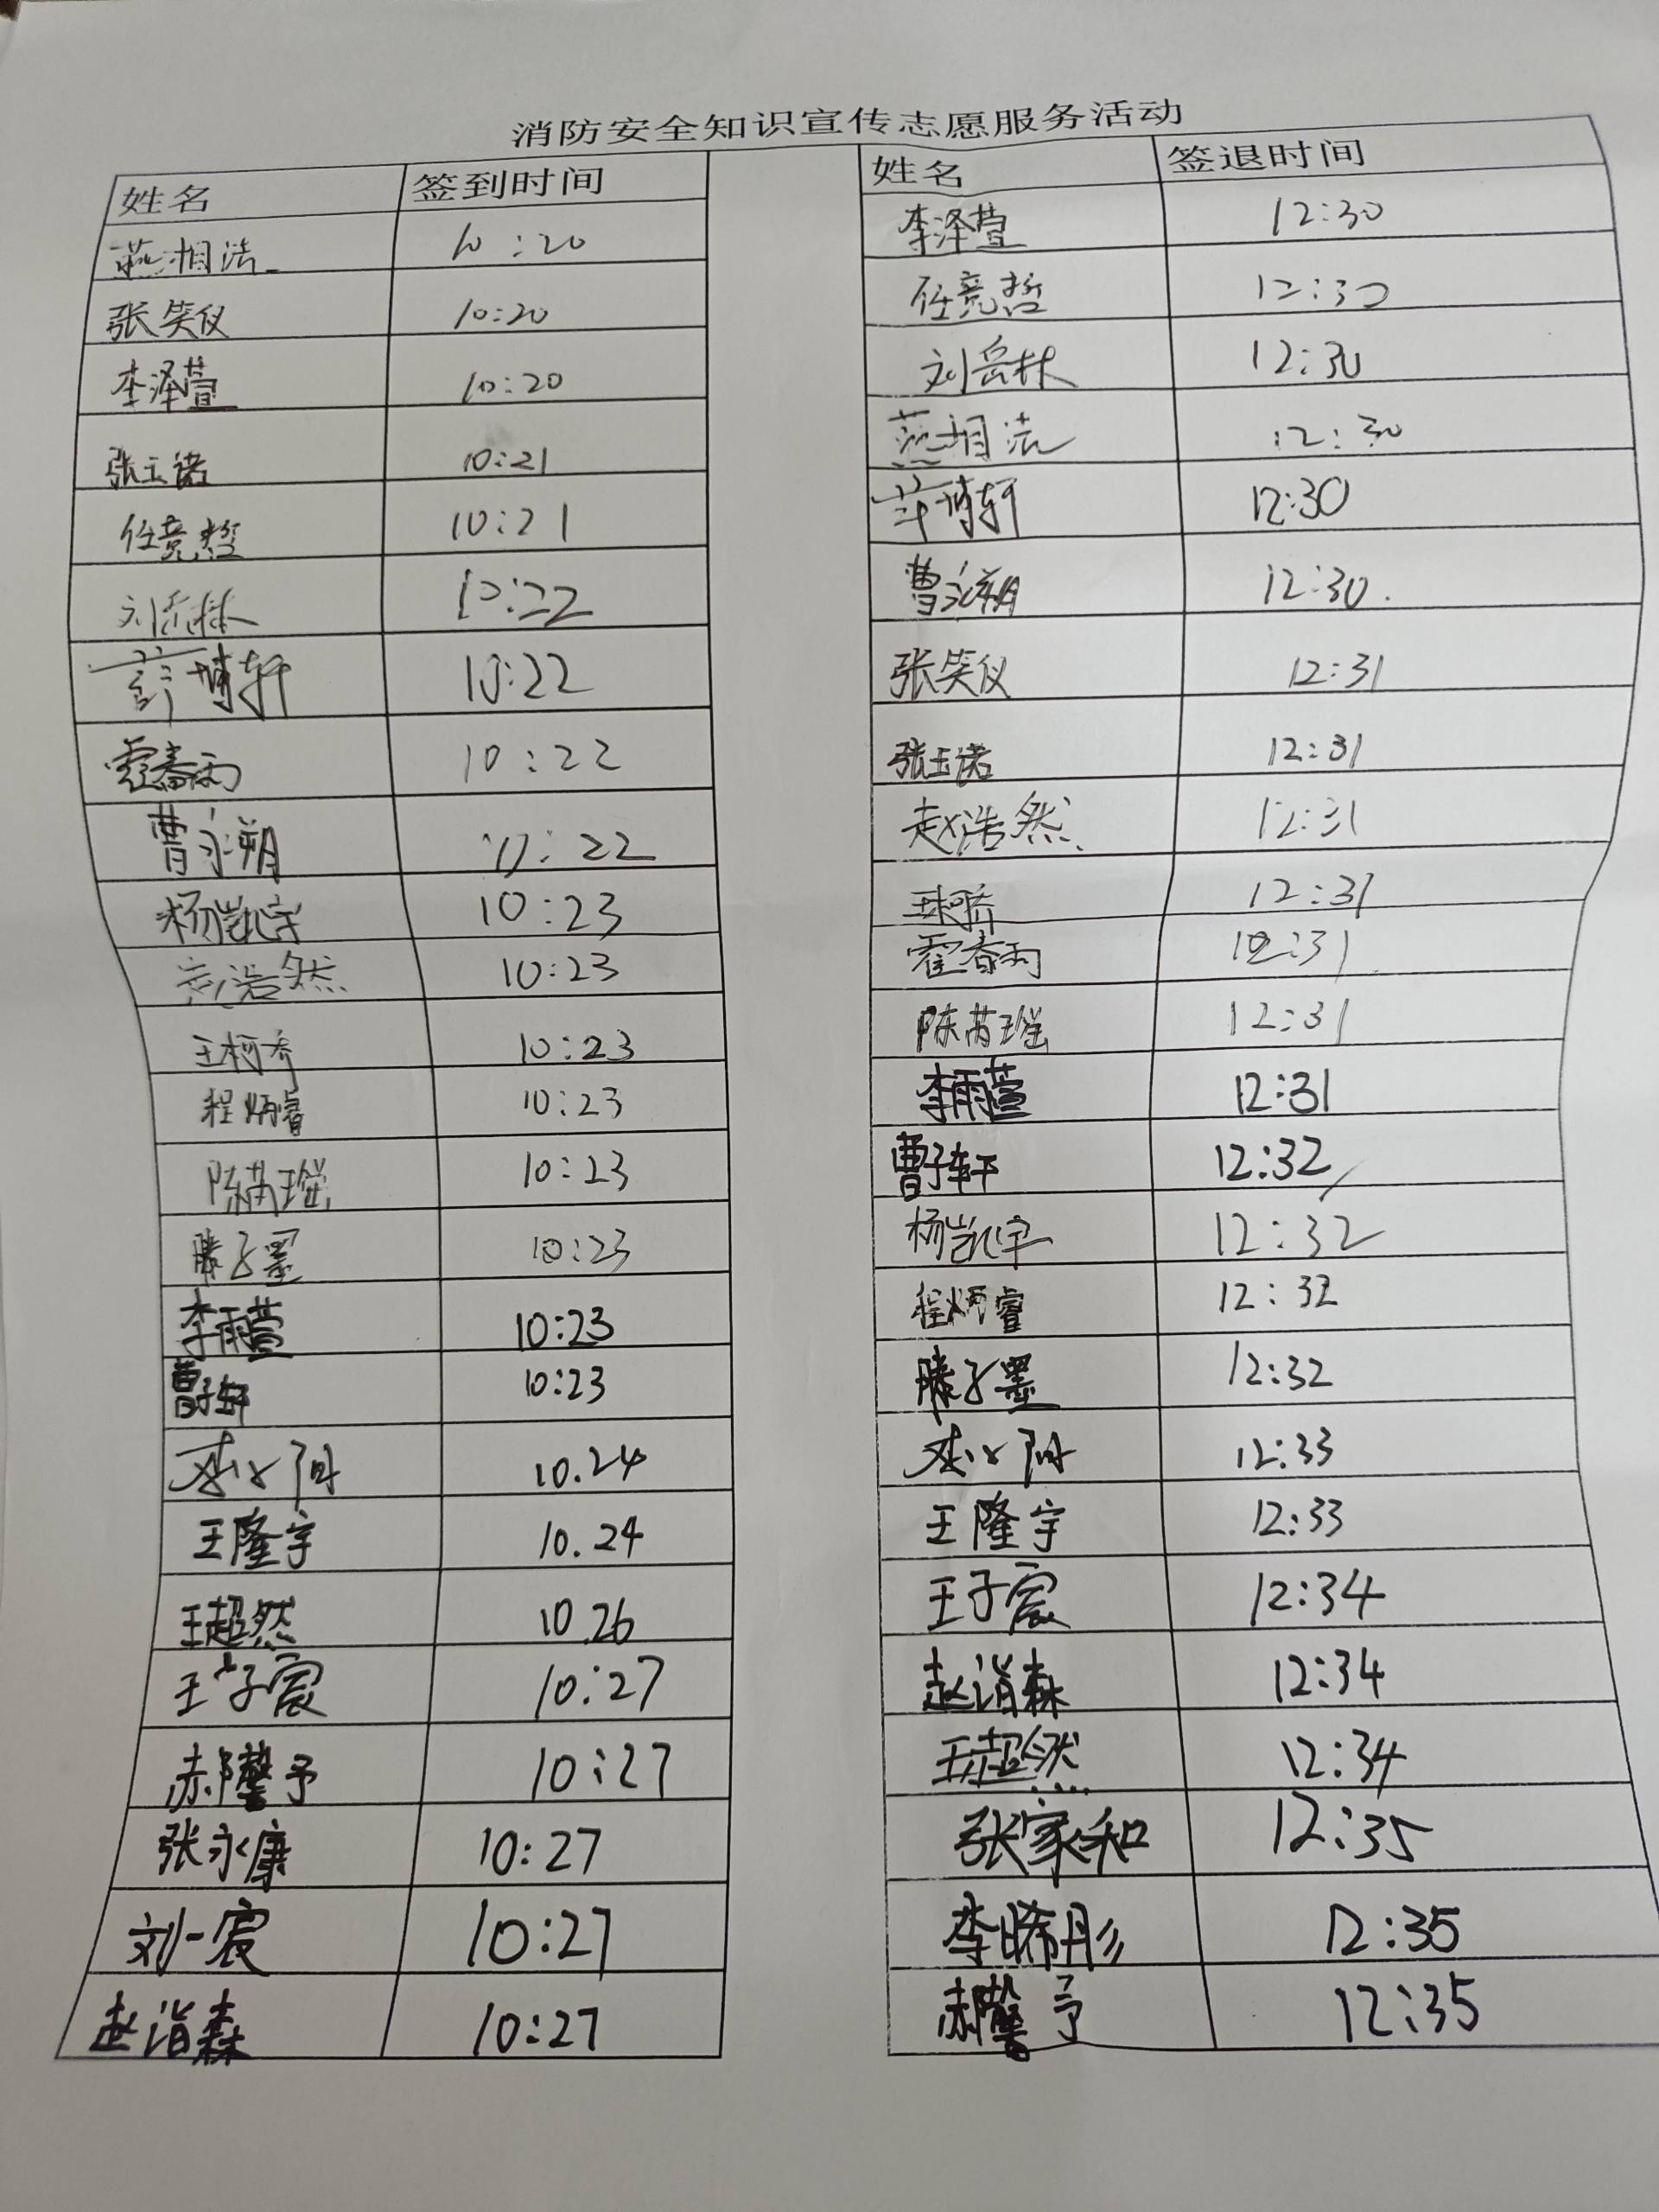 消防安全知识宣传志愿服务活动
姓名 签到时间 姓名 签退时间
燕相浩 10:20 李泽萱 12:30
张笑仪 10:20 任竞哲 12:30
李泽萱 10:20 刘岳林 12:30
张玉诺 10:21 燕相浩 12:30
任竞哲 10:21 薛博轩 12:30
刘岳林 10:22 曹永朔 12:30.
薛博轩 10:22 张笑仪 12:31
霍春雨 10:22 张玉诺 12:31
曹永朔 10:22 赵浩然 12:31
杨凯宇 10:23 王柯乔 12:31
赵浩然 10:23 霍春雨 12:31
王柯乔 10:23 陈芮瑶 12:31
程炳睿 10:23 李雨萱 12:31
陈芮瑶 10:23 曹子轩 12:32
滕子墨 10:23 杨凯宇 12:32
李雨萱 10:23 程炳睿 12:32
曹子轩 10:23 滕子墨 12:32
10.24 12:33
王隆宇 10.24 王隆宇 12:33
王超然 10.26 王子宸 12:34
王子宸 10:27 赵诣森 12:34
郝馨予 10:27 王超然 12:34
张永康 10:27 张家和 12:35
刘一宸 10:27 李晞彤 12:35
赵诣森 10:27 郝馨予 12:35